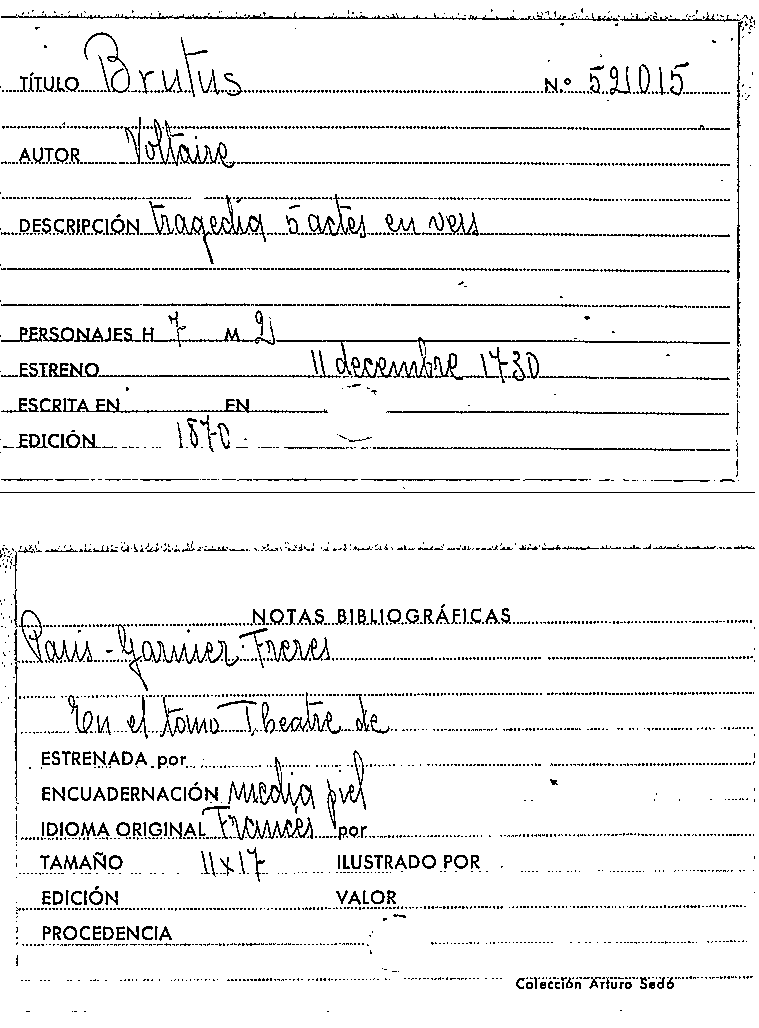 TÍTULO Brutus N.º 521015
AUTOR Voltaire
DESCRIPCIÓN tragedia 5 actes en vers
PERSONAJES H 7 M 2
ESTRENO 11 decembre 1730
ESCRITA EN EN
EDICIÓN 1870
NOTAS BIBLIOGRÁFICAS
Paris - Garnier - Freres
En el tomo Theatre de
ESTRENADA por
ENCUADERNACIÓN media piel
IDIOMA ORIGINAL Frances por
TAMAÑO 11x17 ILUSTRADO POR
EDICIÓN VALOR
PROCEDENCIA
Colección Arturo Sedó